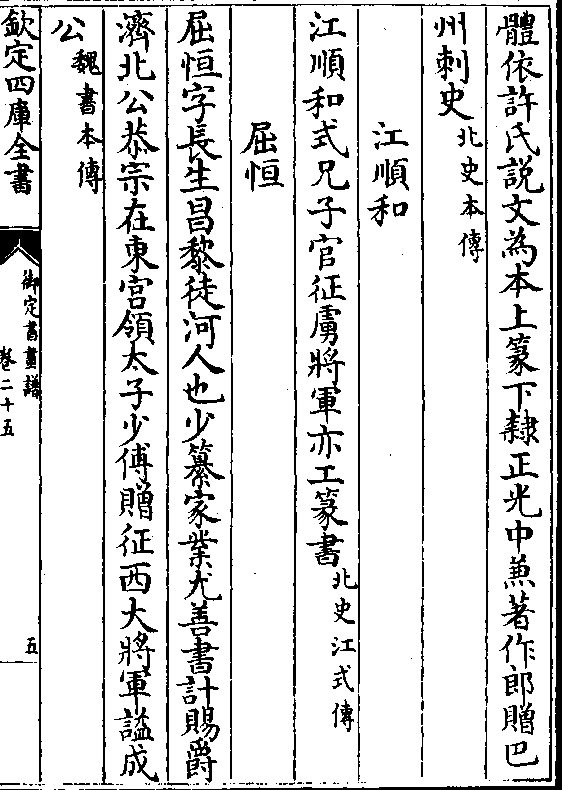 體依許氏説文為本上篆下隸正光中兼著作郎贈巴
州刺史北史本傳
江順和
江順和式兄子官征虜將軍亦工篆書北史江式傳
屈恒
屈恒字長生昌黎徒河人也少纂家業尤善書計賜爵
濟北公恭宗在東宫領太子少傅贈征西大將軍諡成
公魏書本傳
欽定四庫全書
御定書畫譜
卷二十五
五